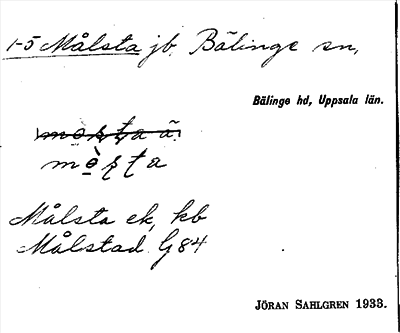 1-5 Målsta jb. Bälinge sn,
Bälinge hd, Uppsala län.
Målsta ek, kb
Målstad G 84
JÖRAN SAHLGREN 1933.